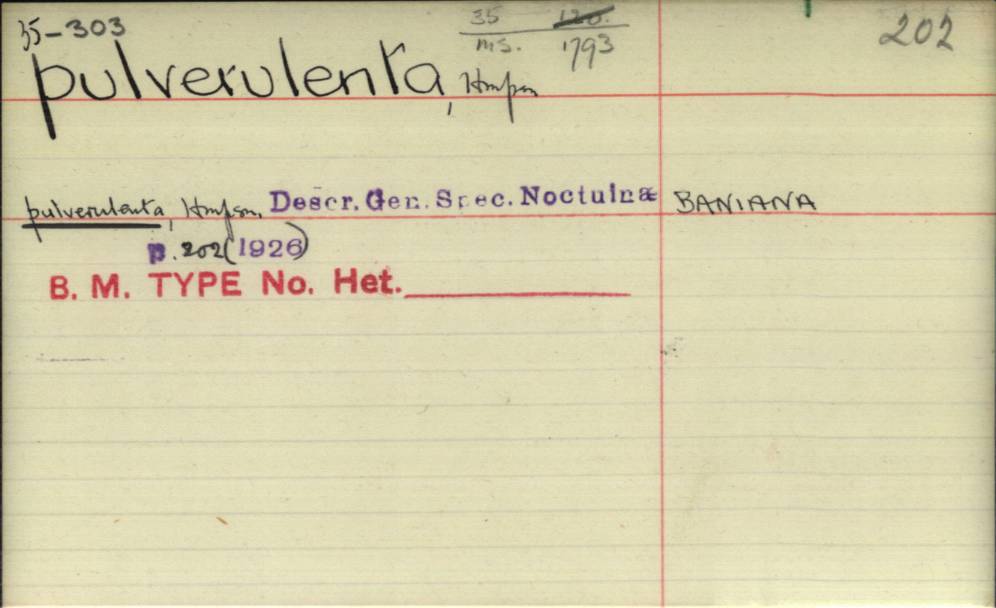 35-303
35 120.
ms. 1793
202
pulverulenta, Hmpsn
pulverulenta, Hmpsn, Descr. Gen. Spec. Noctuinæ BANIANA
p. 202 (1926)
B. M. TYPE No. Het.